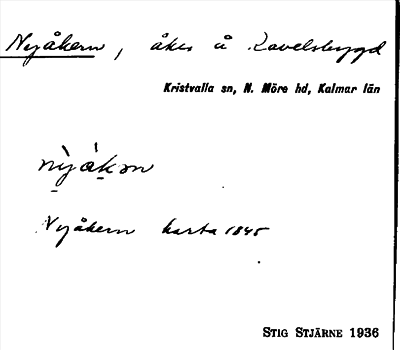 Nyåkern, åker å Lavelsbygd
Kristvalla sn, N. Möre hd, Kalmar län
nỳǻkən
Nyåkern karta 1845
STIG STJÄRNE 1936